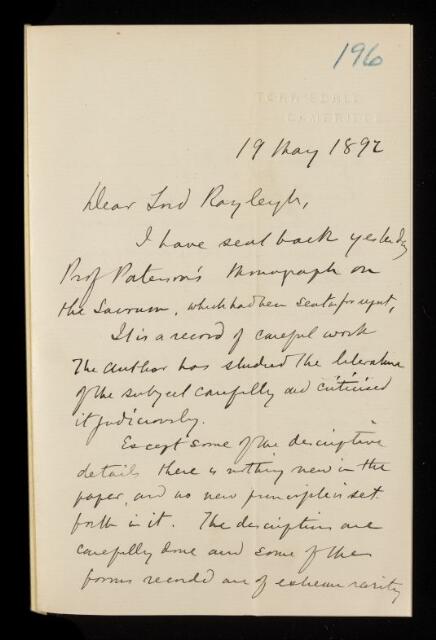 196
TORRISDALE
CAMBRIDGE
19 May 1892
Dear Lord Rayleigh,
I have sent back yesterday
Prof Paterson's Monograph on
the Sacrum, which had been sent for report,
It is a record of careful work
The author has studied the literature
of the subject carefully and criticised
it judiciously.
Except some of the descriptive
details there is nothing new in the
paper, and no new principle is set
forth in it. The descriptions are
carefully done and some of the
forms recorded are of extreme rarity